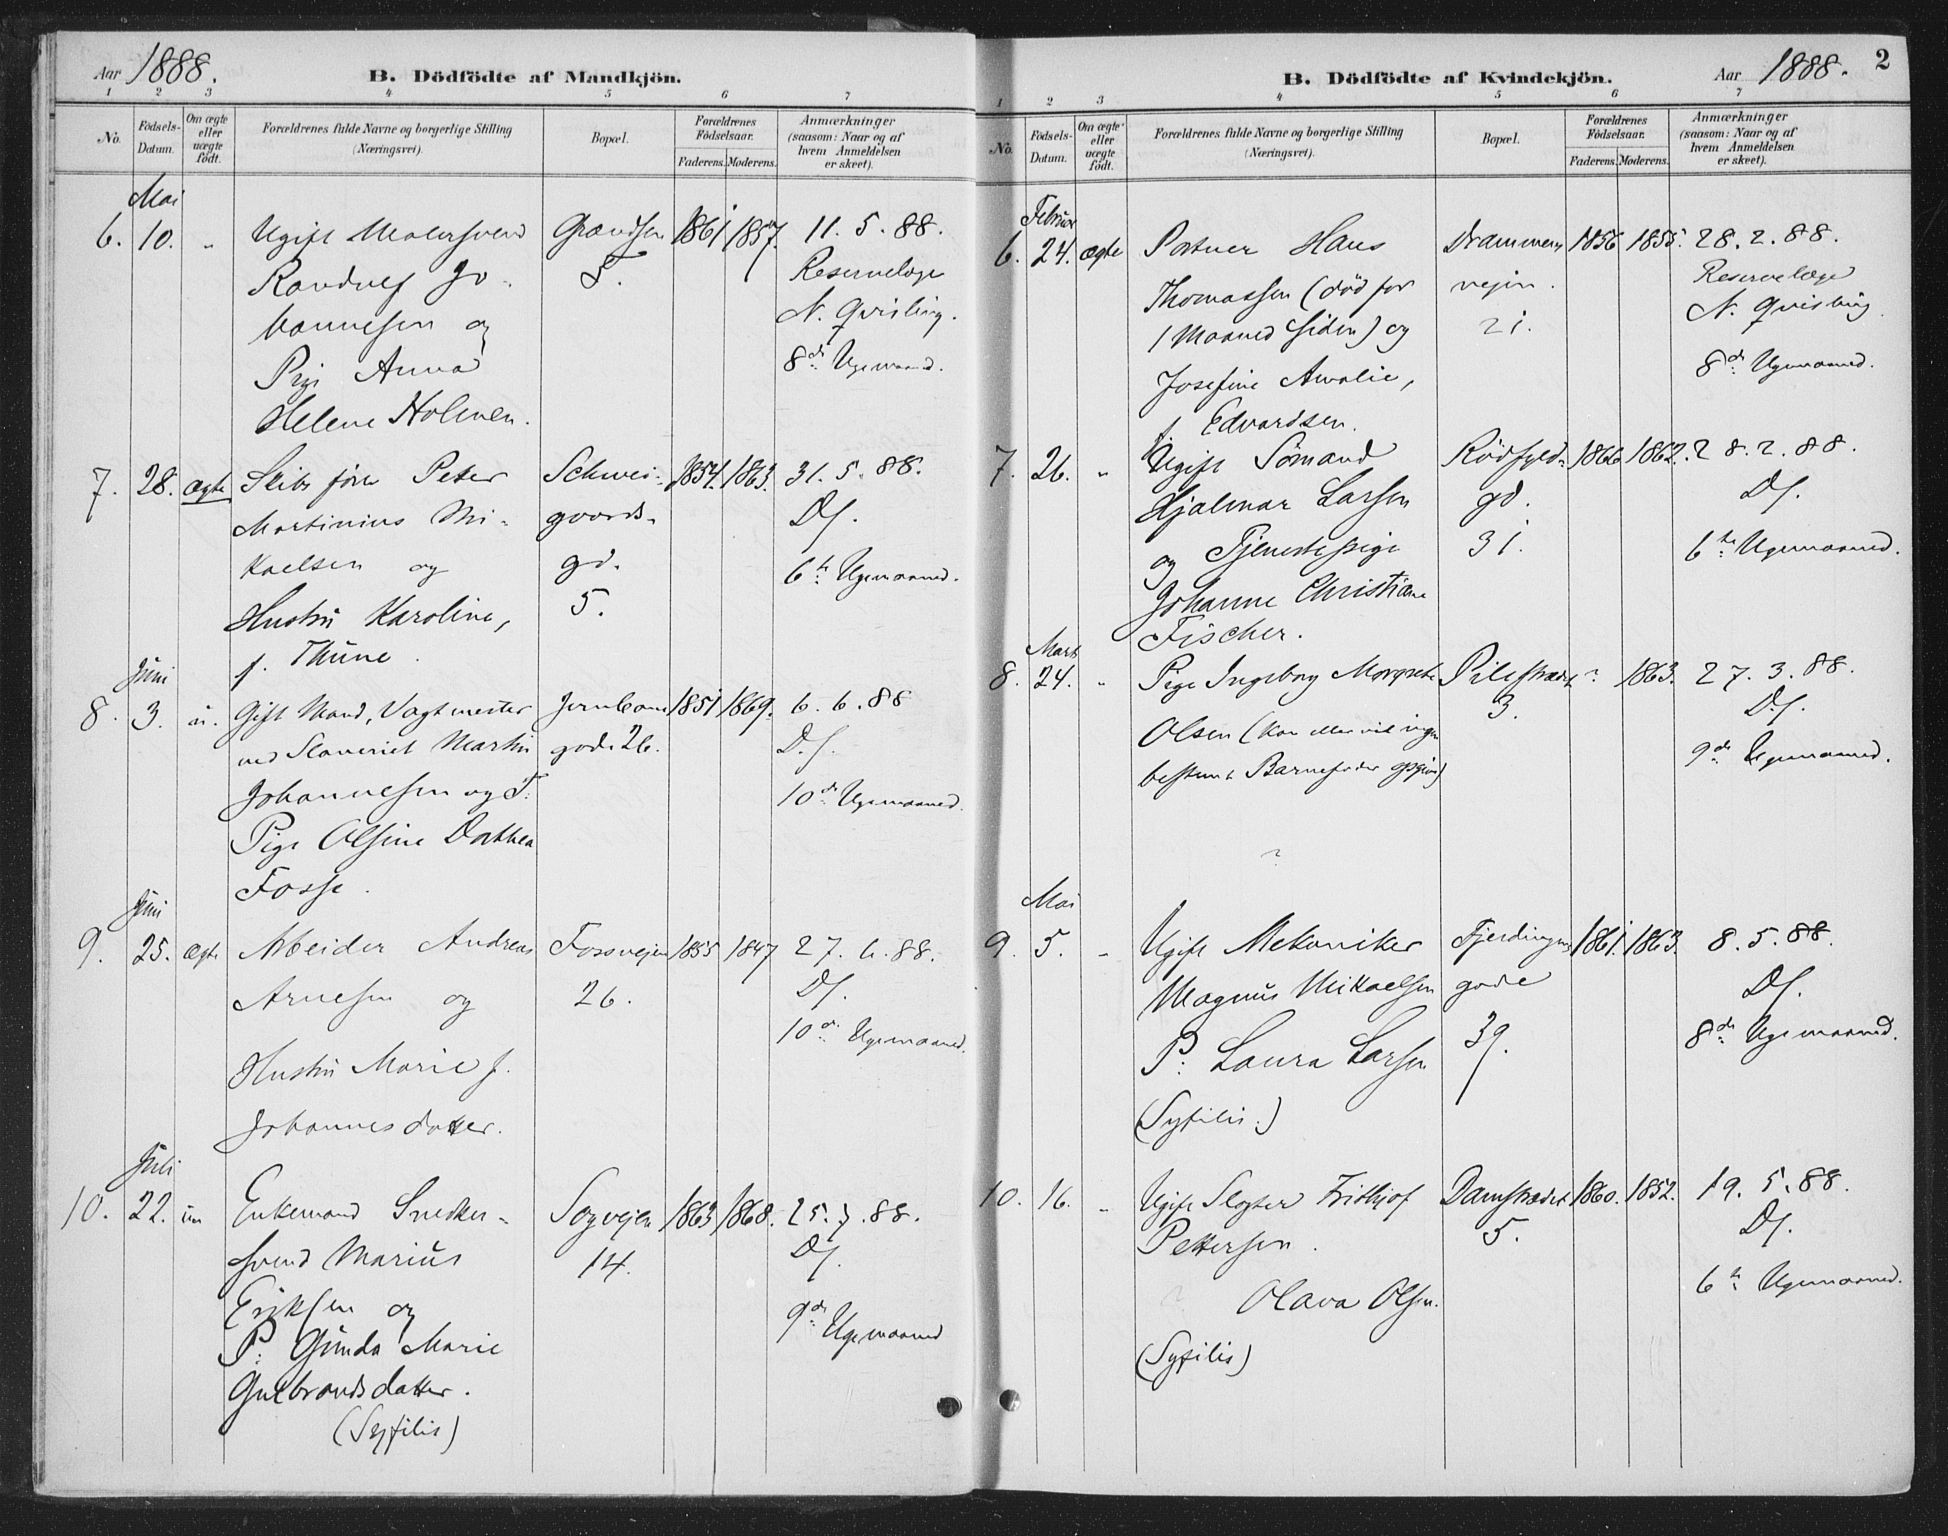 Aar 1888.
B. Dödfödte af Mandkjön.
1 2 3 4 5 6 7
No.
Födsels-
Datum.
Om ægte
eller
uægte
födt.
Forældrenes fulde Navne og borgerlige Stilling
(Næringsvei).
Bopæl.
Forældrenes
Födselsaar.
Faderens. Moderens.
Anmærkninger
(saasom: Naar og af
hvem Anmeldelsen
er skeet).
Mai
6. 10. " Ugift Malersvend 1861 1857. 11. 5. 88.
Randulf Jo- 5. Reservelæge
hannesen og N. Qvisling.
Pige Anna 8de Ugemaaned.
Helene Holmen.
7. 28. ægte Skibsfører Peter Schwei- 1854. 1863. 31. 5. 88.
Martinius Mi- gaards- Ds.
kaelsen og gd. 6te Ugemaaned.
Hustru Karoline, 5.
f. Thune.
Juni
8. 3. u. Gift Mand, Vagtmester Jernbane 1851 1869. 6. 6. 88
ved Slaveriet Martin gade 26. D.s.
Johannesen og F: 10de Ugemaaned.
Pige Olsine Dorthea
Fosse.
Juni
9. 25. ægte Arbeider Andreas Fossvejen 1855 1847 27. 6. 88.
Arnesen og 26. Ds.
Hustru Marie f. 10de Ugemaaned.
Johannesdatter.
Juli
10. 22. Enkemand Snedker- Sogvejen 1863 1868. 25. 7. 88.
svend Marius 14. Ds.
Eriksen og 9de Ugemaaned
P: Gunda Marie
Gulbrandsdatter.
(Syfilis)
B. Dödfödte af Kvindekjön.
Aar 1888. 2
1 2 3 4 5 6 7
No.
Födsels-
Datum.
Om ægte
eller
uægte
födt.
Forældrenes fulde Navne og borgerlige Stilling
(Næringsvei).
Bopæl.
Forældrenes
Födselsaar.
Faderens. Moderens.
Anmærkninger
(saasom: Naar og af
hvem Anmeldelsen
er skeet).
Februar
6. 24. ægte Hans Drammens 1856 1855. 28. 2. 88.
Thomassen (død for vejen. Reservelæge
1 Maaned siden) og 21. N. Qvisling.
Josefine Amalie, 8de Ugemaaned.
f. Edvardsen.
7. 26. " Ugift Sømand Rødfyld- 1866 1862. 28. 2. 88.
Hjalmar Larsen gd. Ds.
og Tjenestepige 31. 6te Ugemaaned.
Johanne Christiane
Fischer.
Marts
8. 24. " Pige Ingeborg Margrete Pilestrædet ? 1863. 27. 3. 88.
Olsen (kan eller vil ingen 3. Ds.
bestemt Barnefader opgive) 9de Ugemaaned.
?
Mai
9. 5. " Ugift Mekaniker Fjerdings 1861. 1863. 8. 5. 88.
Magnus Mikaelsen gade Ds.
P: Laura Larsen 39. 8de Ugemaaned.
(Syfilis.)
10. 16. " Ugift Slagter Fridthjof Damstrædet 1860. 1852. 19. 5. 88.
Pettersen. 5. Ds.
Olava Olsen. 6te Ugemaaned.
(Syfilis)